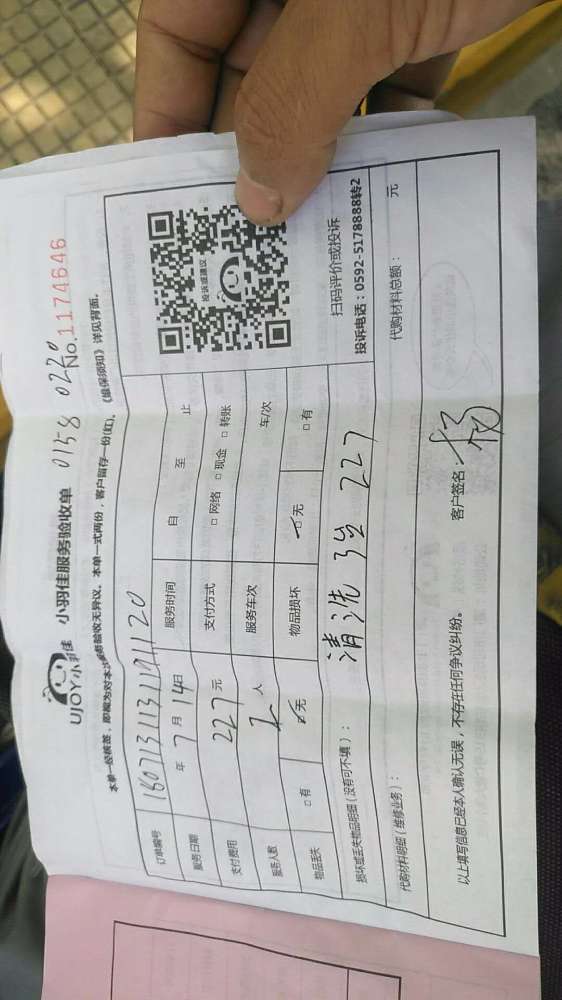 UJOY小羽佳 小羽佳服务验收单 0158 0220
No.1174646
本单一经核签，即视为对本次服务验收无异议。本单一式两份，客户留存一份(红)。《维保须知》详见背面。
订单编号 1807131131191120
服务日期 年 7 月 14 日 服务时间 自 至 止
支付费用 227 元 支付方式 □ 网络 □ 现金 □ 转账
服务人数 2 人 服务车次 车/次
物品丢失 □ 有 □ 无 物品损坏 □ 无 □ 有
投诉或建议
扫码评价或投诉
投诉电话：0592-5178888转2
损坏或丢失物品明细（没有可不填）： 清洗 227
代购材料明细（维修业务）： 代购材料总额： 元
以上填写信息已经本人确认无误，不存在任何争议纠纷。 客户签名： 杨